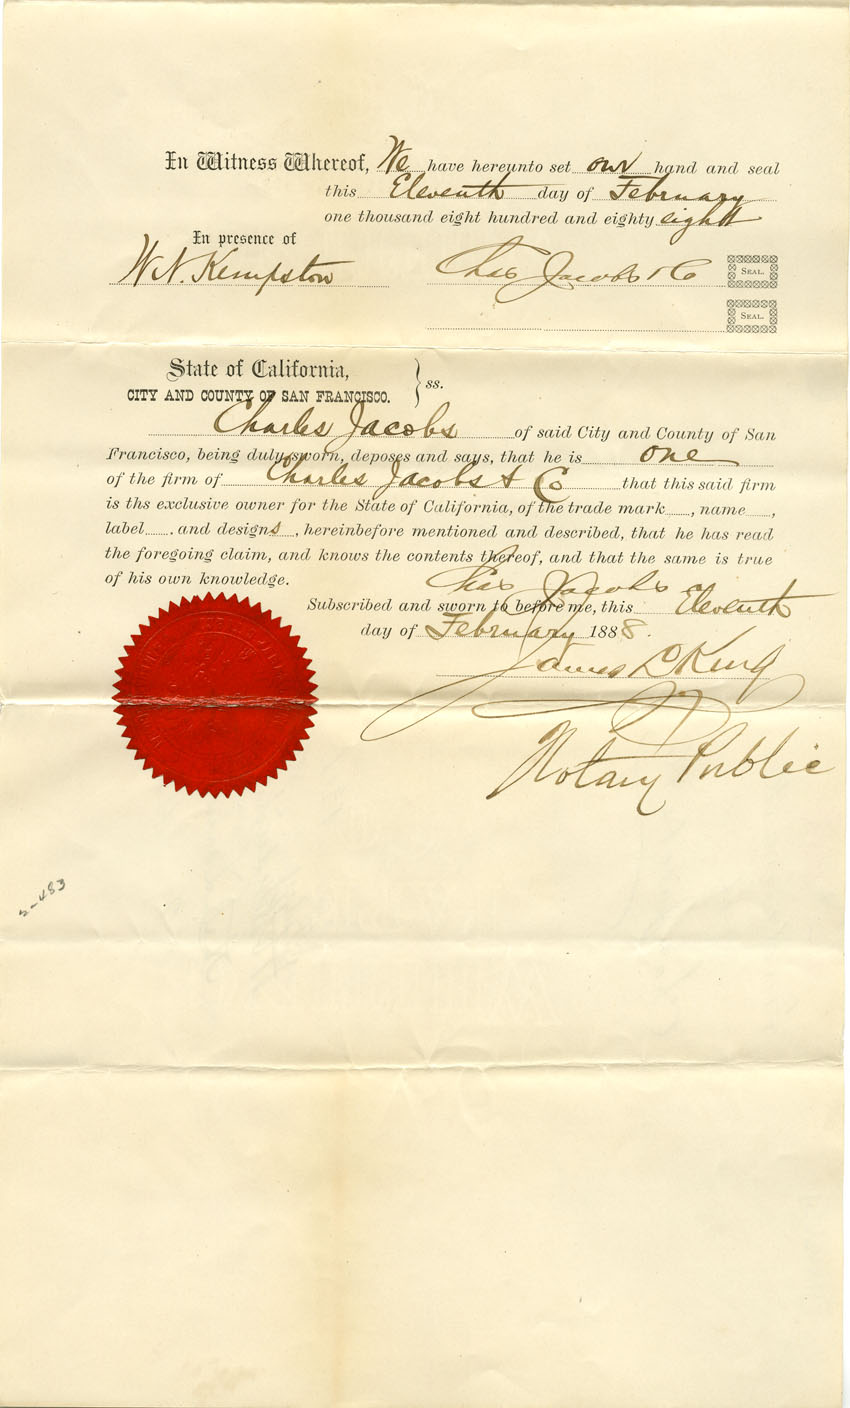 In Witness Whereof, We have hereunto set our hand and seal
this Eleventh day of February
one thousand eight hundred and eighty eight
In presence of
W. N. Kempston Chas Jacobs & Co SEAL.
SEAL.
State of California,
CITY AND COUNTY OF SAN FRANCISCO. } ss.
Charles Jacobs of said City and County of San
Francisco, being duly sworn, deposes and says, that he is one
of the firm of Charles Jacobs & Co that this said firm
is ths exclusive owner for the State of California, of the trade mark , name ,
label . and designs , hereinbefore mentioned and described, that he has read
the foregoing claim, and knows the contents thereof, and that the same is true
of his own knowledge.
Chas Jacobs
Subscribed and sworn to before me, this Eleventh
day of February 1888.
James L King
Notary Public
2-483